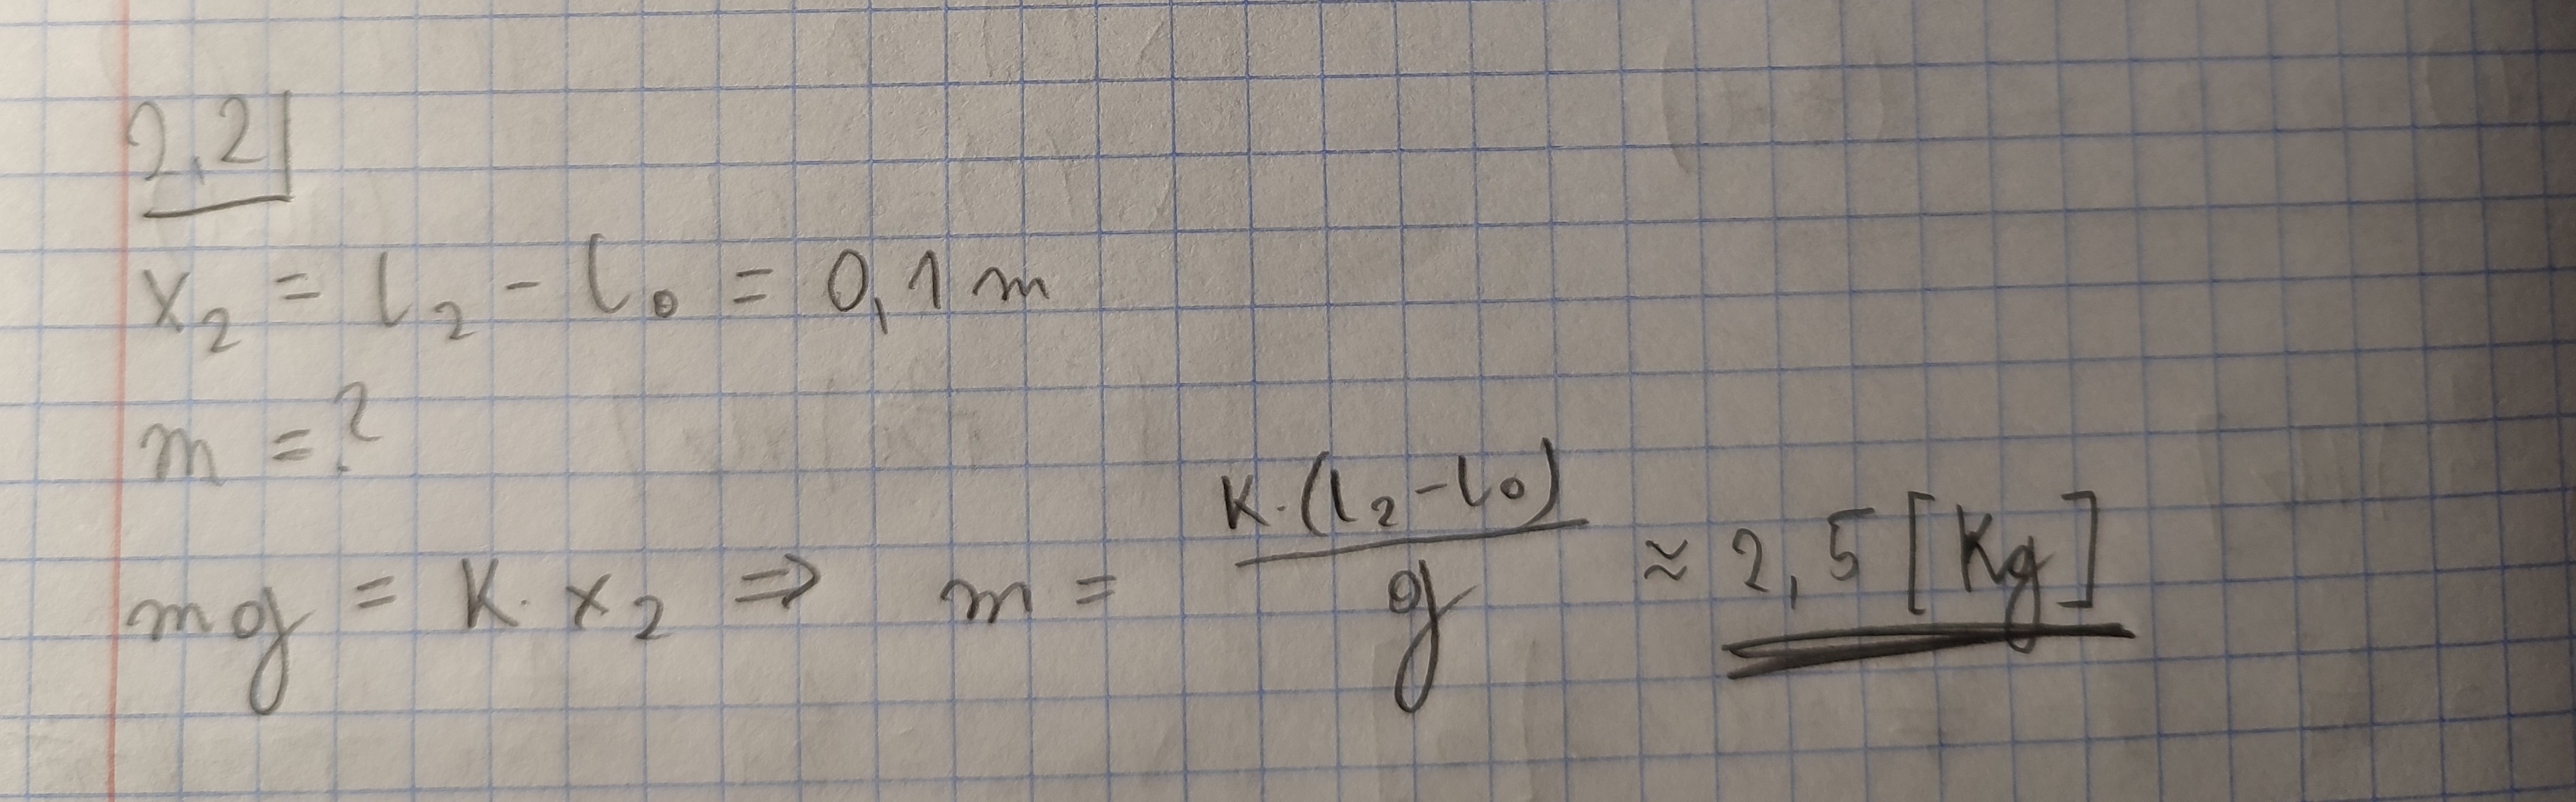 2,2
x₂ = l₂ - l₀ = 0,1 m
m = ?
mg = K · x₂ ⇒ m = K·(l₂-l₀) / g ≈ 2,5 [Kg]